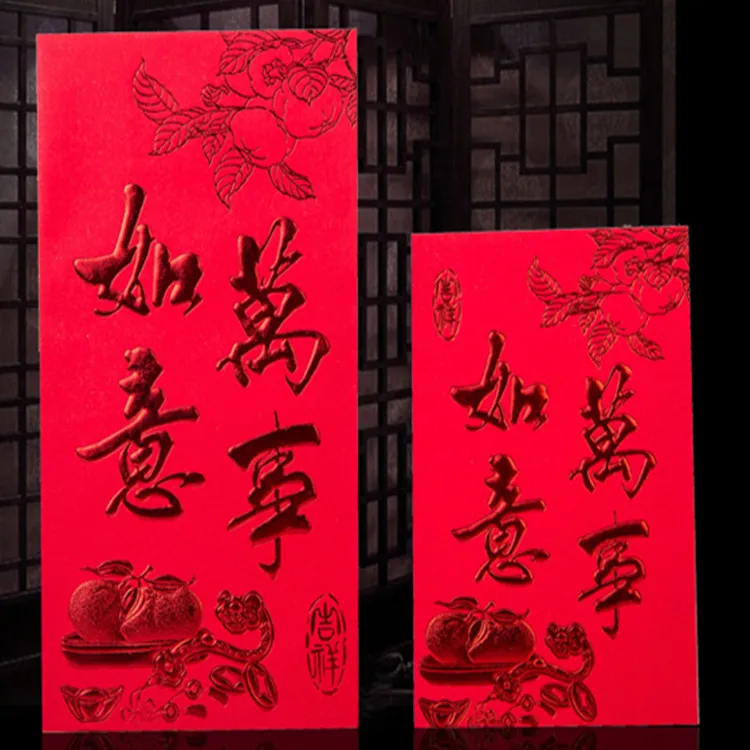 萬事
如意
吉祥
吉祥
萬事
如意